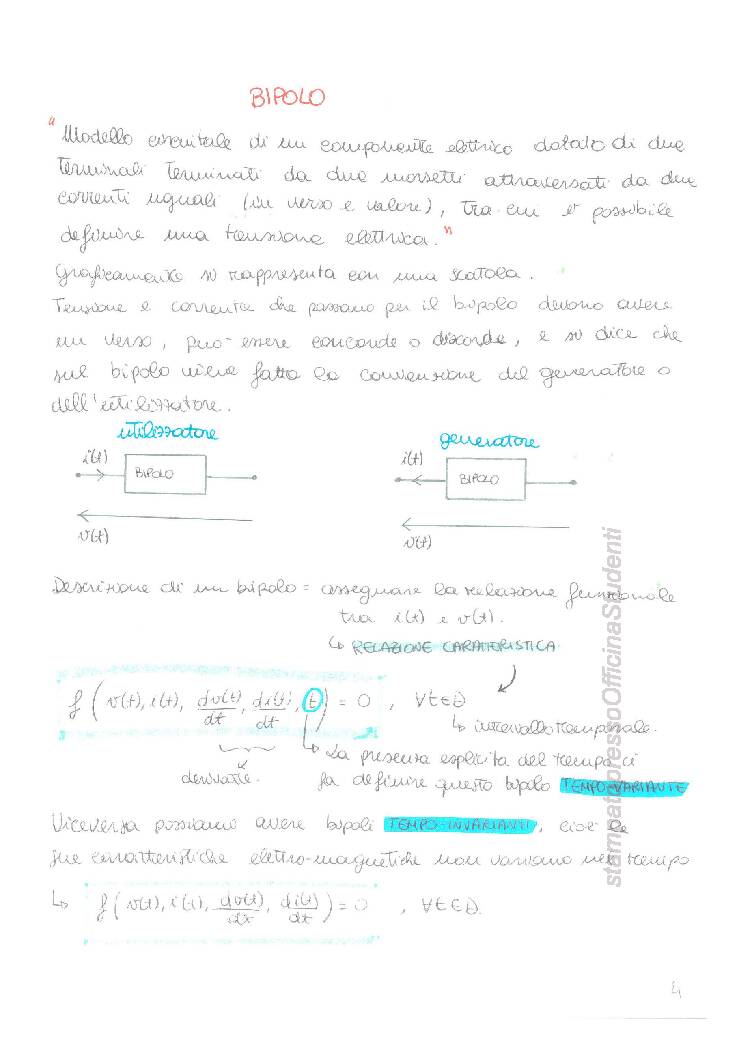 BIPOLO
"Modello circuitale di un componente elettrico dotato di due
terminali terminati da due morsetti attraversati da due
correnti uguali (in verso e valore), tra cui è possibile
definire una tensione elettrica."
Graficamente si rappresenta con una scatola.
Tensione e corrente che passano per il bipolo devono avere
un verso, può essere concorde o discorde, e si dice che
sul bipolo viene fatta la convenzione del generatore o
dell'utilizzatore.
utilizzatore
i(t)
BIPOLO
v(t)
generatore
i(t)
BIPOLO
v(t)
Descrizione di un bipolo = assegnare la relazione funzionale
tra i(t) e v(t).
↳ RELAZIONE CARATTERISTICA
f ( v(t), i(t), dv(t)/dt, di(t)/dt, t ) = 0 , ∀t∈D
↳ intervallo temporale.
derivate.
↳ La presenza esplicita del tempo ci
fa definire questo bipolo TEMPO-VARIANTE
Viceversa possiamo avere bipoli TEMPO-INVARIANTI, cioè le
sue caratteristiche elettro-magnetiche non variano nel tempo
↳ f ( v(t), i(t), dv(t)/dt, di(t)/dt ) = 0 , ∀t∈D.
4
stampatopressoOfficinaStudenti